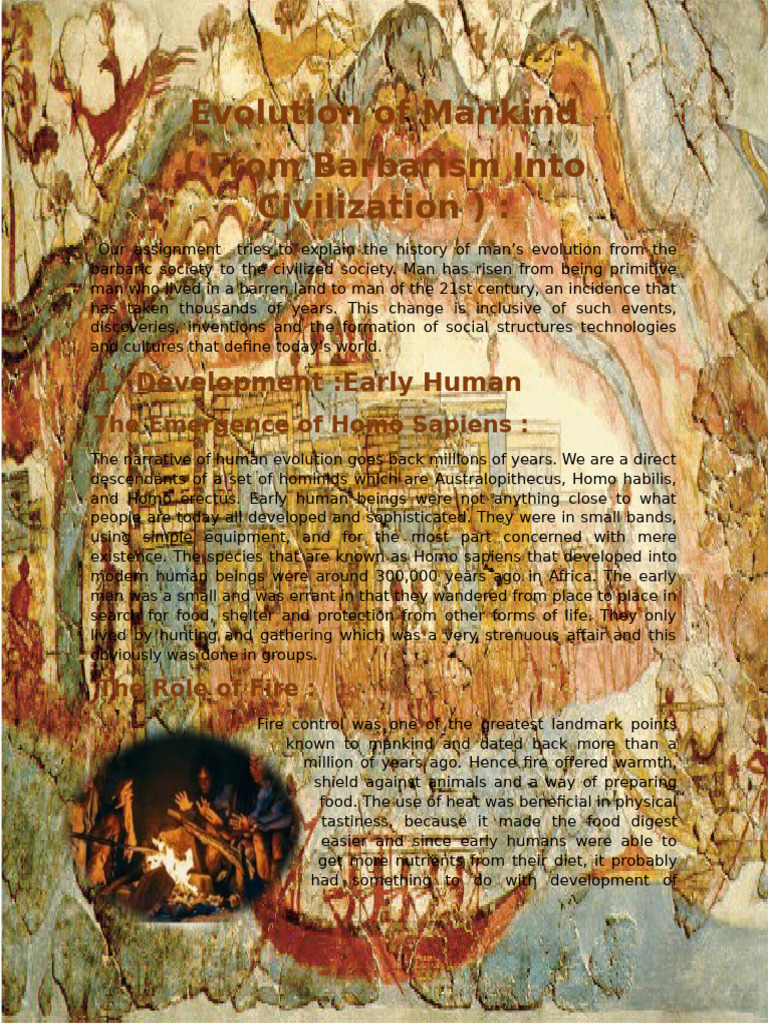 Evolution of Mankind
( From Barbarism Into
Civilization ) :
Our assignment tries to explain the history of man’s evolution from the
barbaric society to the civilized society. Man has risen from being primitive
man who lived in a barren land to man of the 21st century, an incidence that
has taken thousands of years. This change is inclusive of such events,
discoveries, inventions and the formation of social structures technologies
and cultures that define today’s world.
1. Development :Early Human
The Emergence of Homo Sapiens :
The narrative of human evolution goes back millions of years. We are a direct
descendants of a set of hominids which are Australopithecus, Homo habilis,
and Homo erectus. Early human beings were not anything close to what
people are today all developed and sophisticated. They were in small bands,
using simple equipment, and for the most part concerned with mere
existence. The species that are known as Homo sapiens that developed into
modern human beings were around 300,000 years ago in Africa. The early
man was a small and was errant in that they wandered from place to place in
search for food, shelter and protection from other forms of life. They only
lived by hunting and gathering which was a very strenuous affair and this
obviously was done in groups.
The Role of Fire :
Fire control was one of the greatest landmark points
known to mankind and dated back more than a
million of years ago. Hence fire offered warmth,
shield against animals and a way of preparing
food. The use of heat was beneficial in physical
tastiness, because it made the food digest
easier and since early humans were able to
get more nutrients from their diet, it probably
had something to do with development of